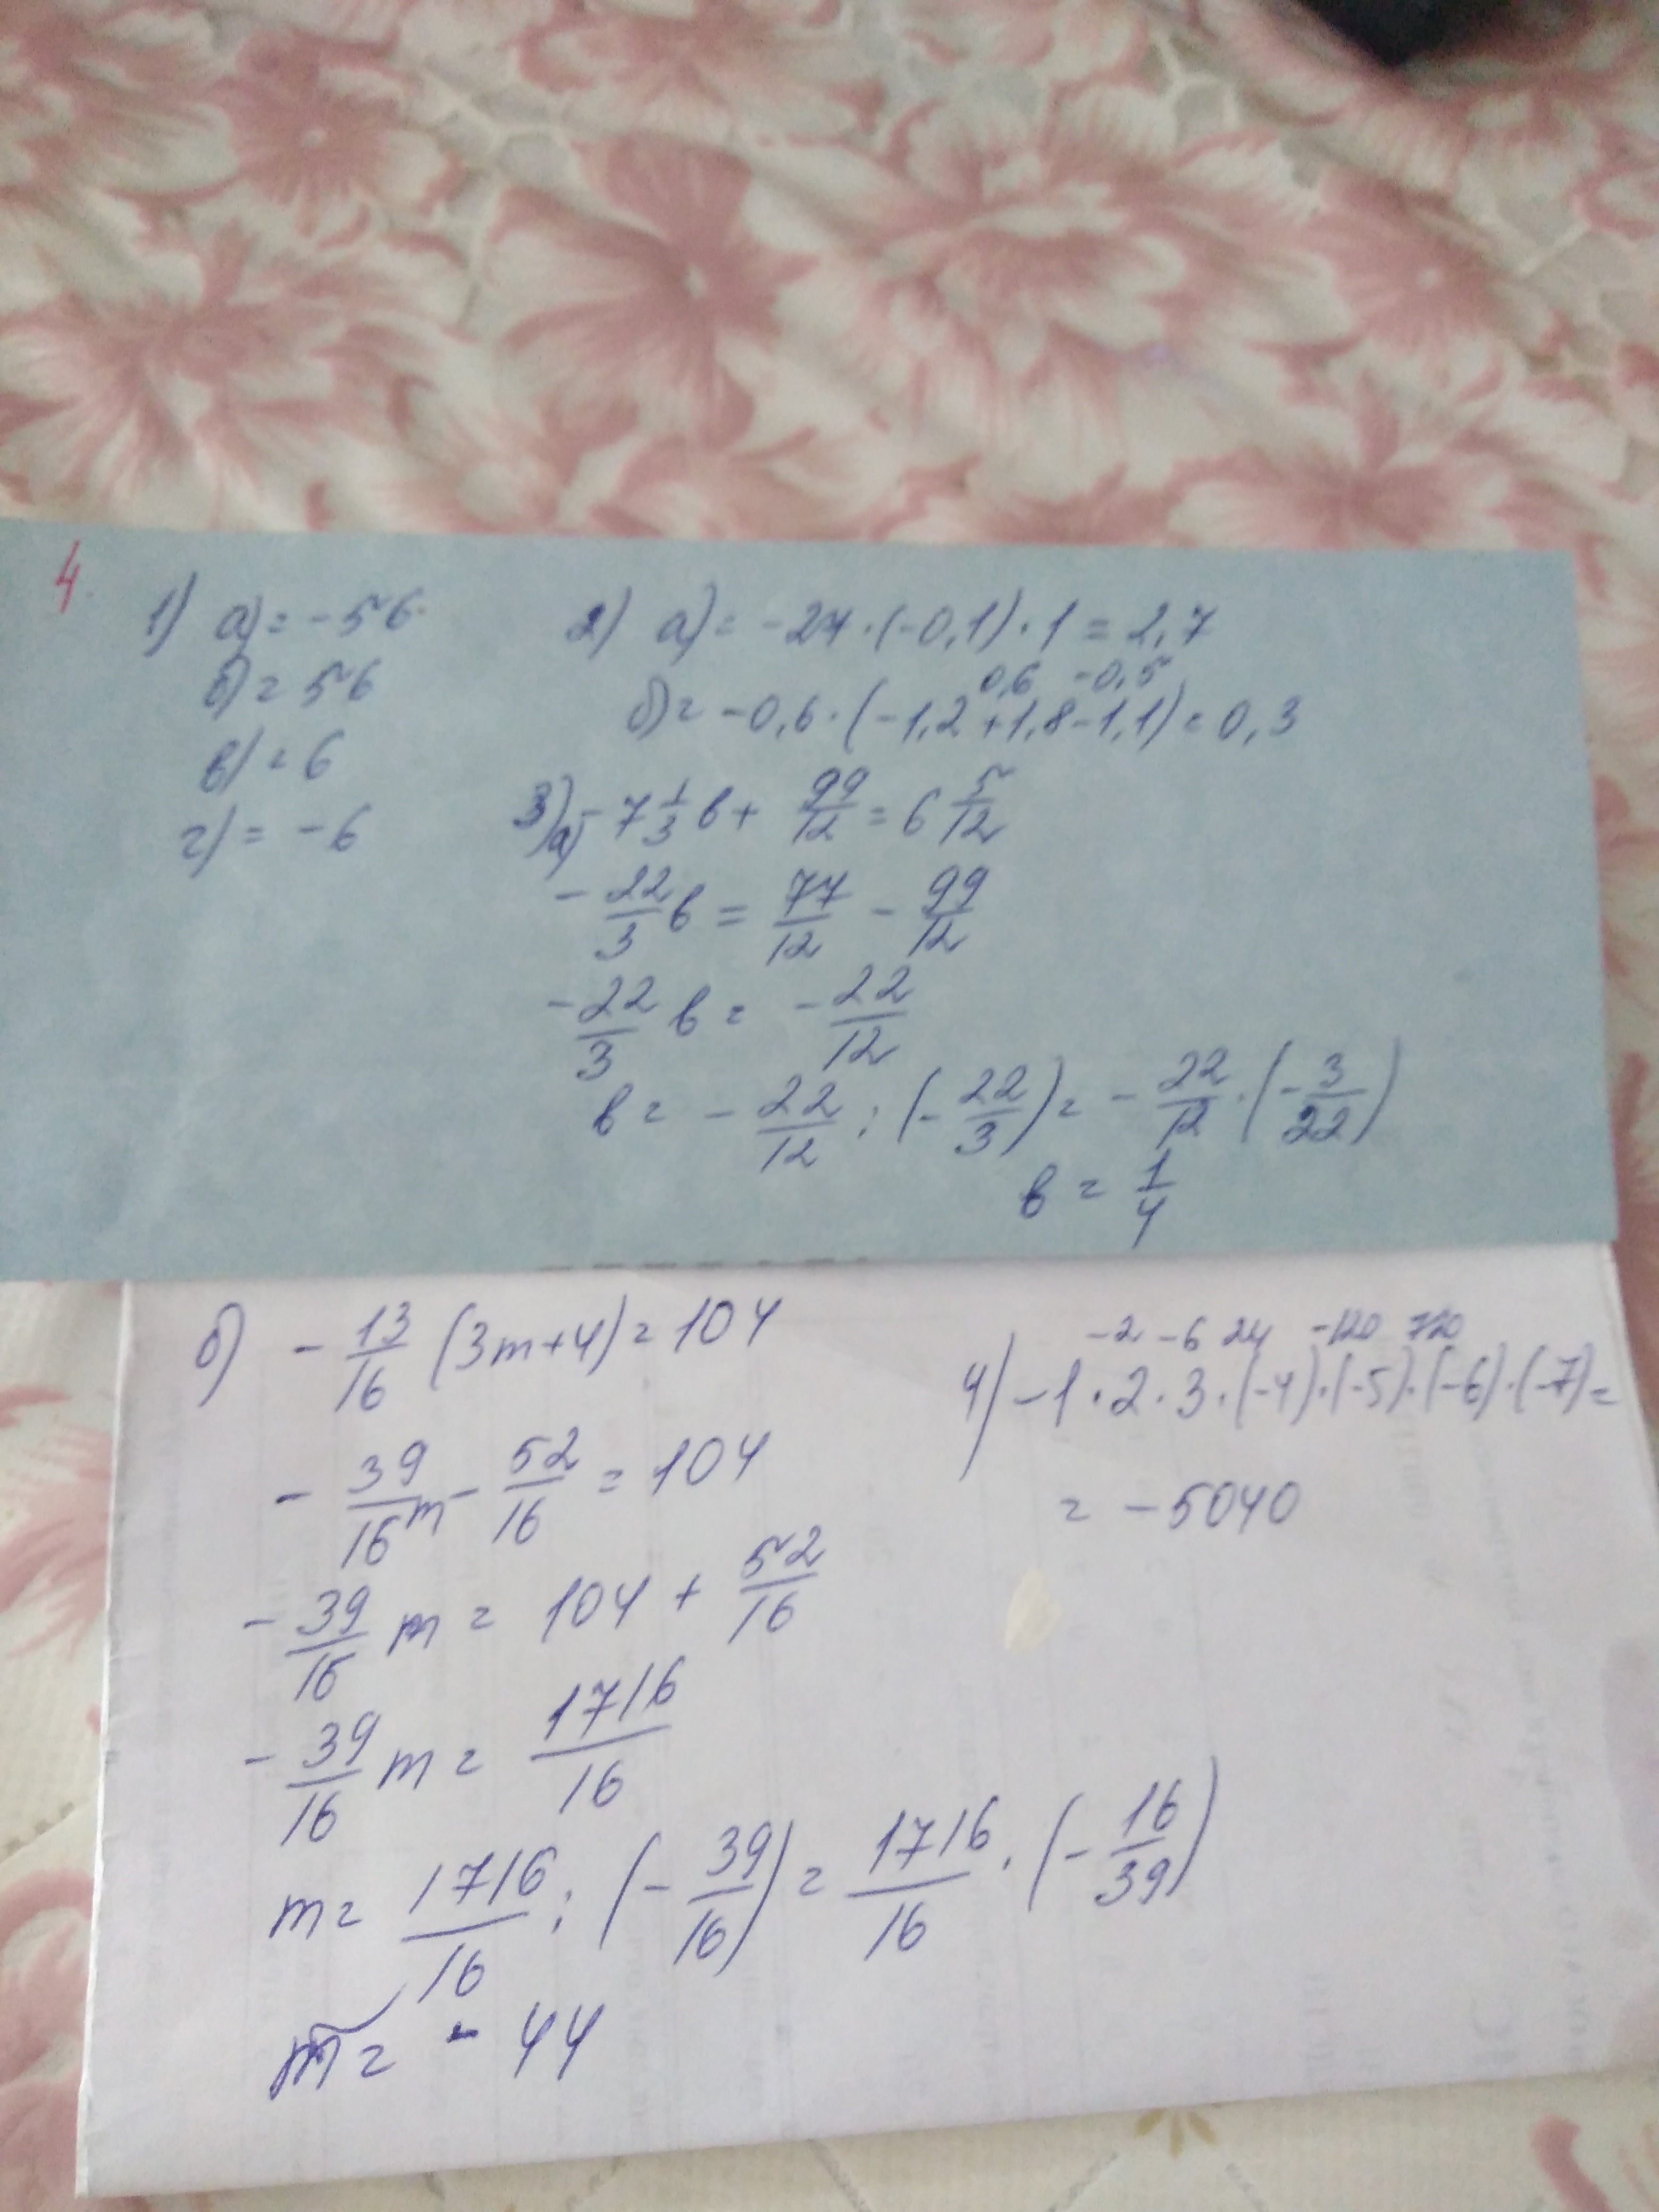 4.
1) а) = -56
б) = 56
в) = 6
г) = -6
2) а) = -27·(-0,1)·1 = 2,7
0,6 -0,5
б) = -0,6·(-1,2+1,8-1,1) = 0,3
3) а) -7 1/3 в + 99/12 = 6 5/12
-22/3 в = 77/12 - 99/12
-22/3 в = -22/12
в = -22/12 : (-22/3) = -22/12 · (-3/22)
в = 1/4
б) -13/16 (3m+4) = 104
-39/16 m - 52/16 = 104
-39/16 m = 104 + 52/16
-39/16 m = 1716/16
m = 1716/16 : (-39/16) = 1716/16 · (-16/39)
m = -44
-2 -6 24 -120 720
4) -1·2·3·(-4)·(-5)·(-6)·(-7) =
= -5040